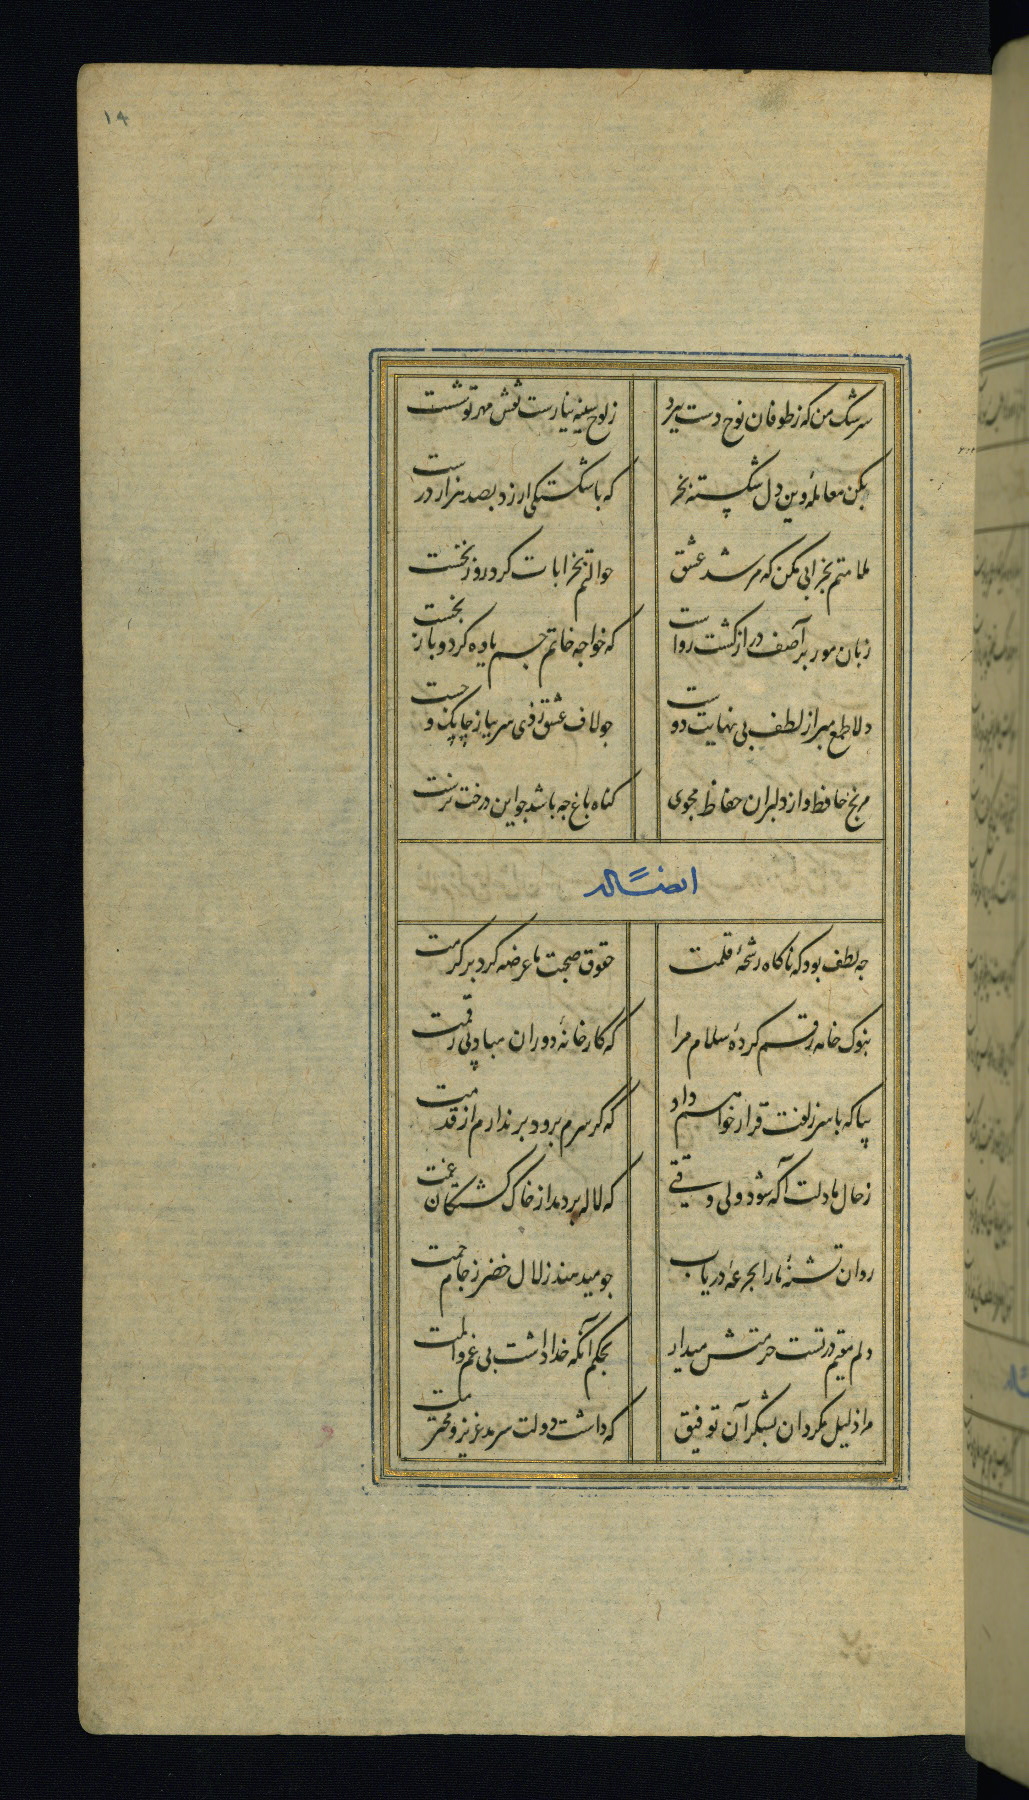 ۱۹
سرشک من که ز طوفان نوح دست ببرد
ز لوح سینه نیارست نقش مهر تو شست
بکن معامله وین دل شکسته بخر
که با شکستکی ارزد بصد هزار درست
ملامتم بخرابی مکن که مرشد عشق
حوالتم بخرابات کرد روز نخست
زبان مور بر آصف دراز کشت رواست
که خواجه خاتم جم یاوه کرد و باز نجست
دلا طمع مبر از لطف بی نهایت دوست
جو لاف عشق زدی سر بباز چابک و جست
مرنج حافظ و از دلبران حفاظ مجوی
کناه باغ جه باشد جو این درخت نرست
ایضاً له
جه لطف بود که ناکاه رشحهٔ قلمت
حقوق صحبت ما عرضه کرد بر کرمت
بنوک خامه رقم کردهٔ سلام مرا
که کارخانهٔ دوران مباد بی رقمت
بیا که با سر زلفت قرار خواهم داد
که کر سرم برود بر ندارم از قدمت
ز حال ما دلت آکه شود ولی وقتی
که لاله بر دمد از خاک کشتکان غمت
روان تشنهٔ ما را بجرعهٔ دریاب
جو میدهند زلال خضر ز جام جمت
دلم مقیم در تست حرمتش میدار
بحکم آنکه خدا داشت بی غم و المت
مرا ذلیل مکردان بشکر آن توفیق
که داشت دولت سرمد عزیز و محترمت